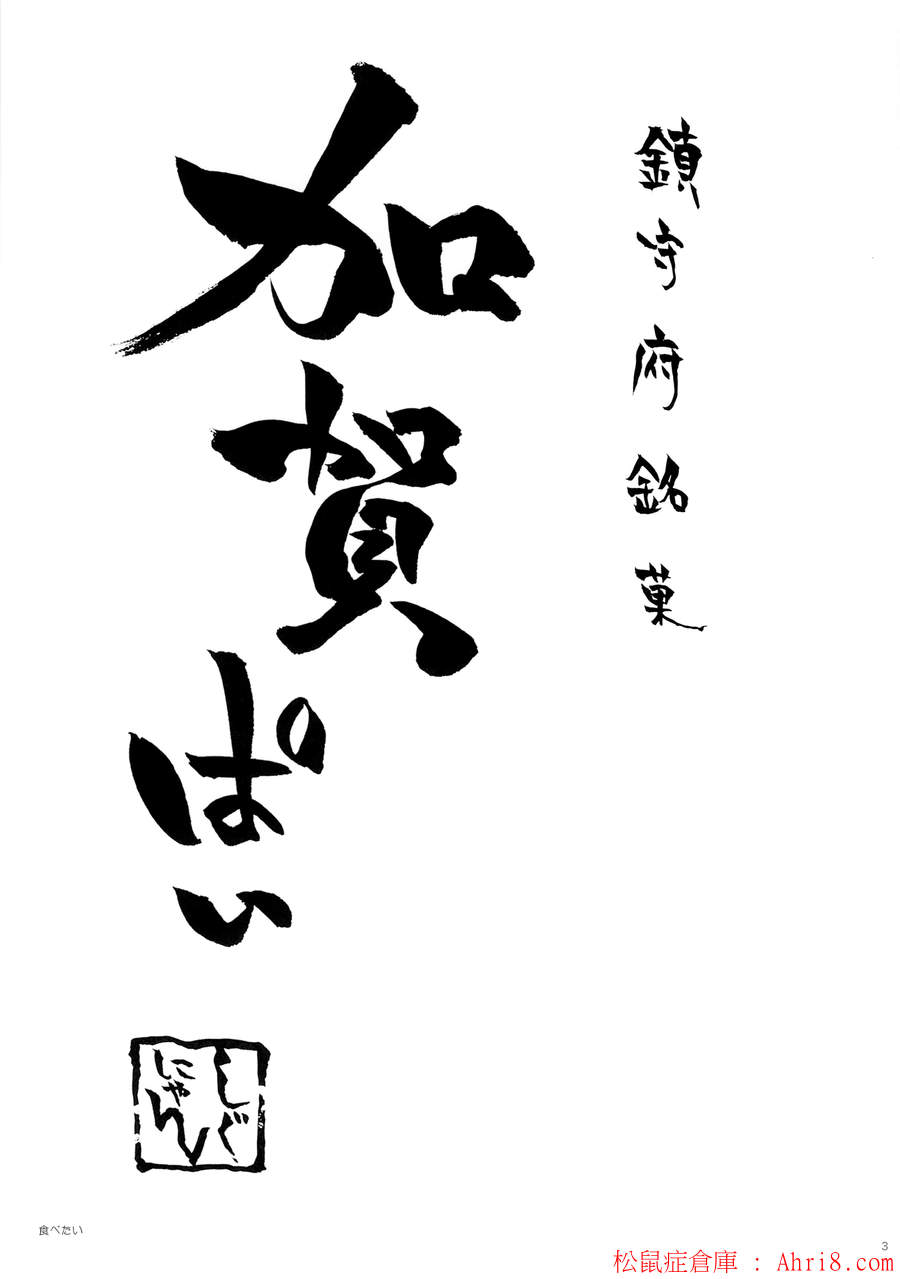 鎮守府銘菓
加賀ぱい
しぐ
にゃん
食べたい
3
松鼠症倉庫 : Ahri8.com